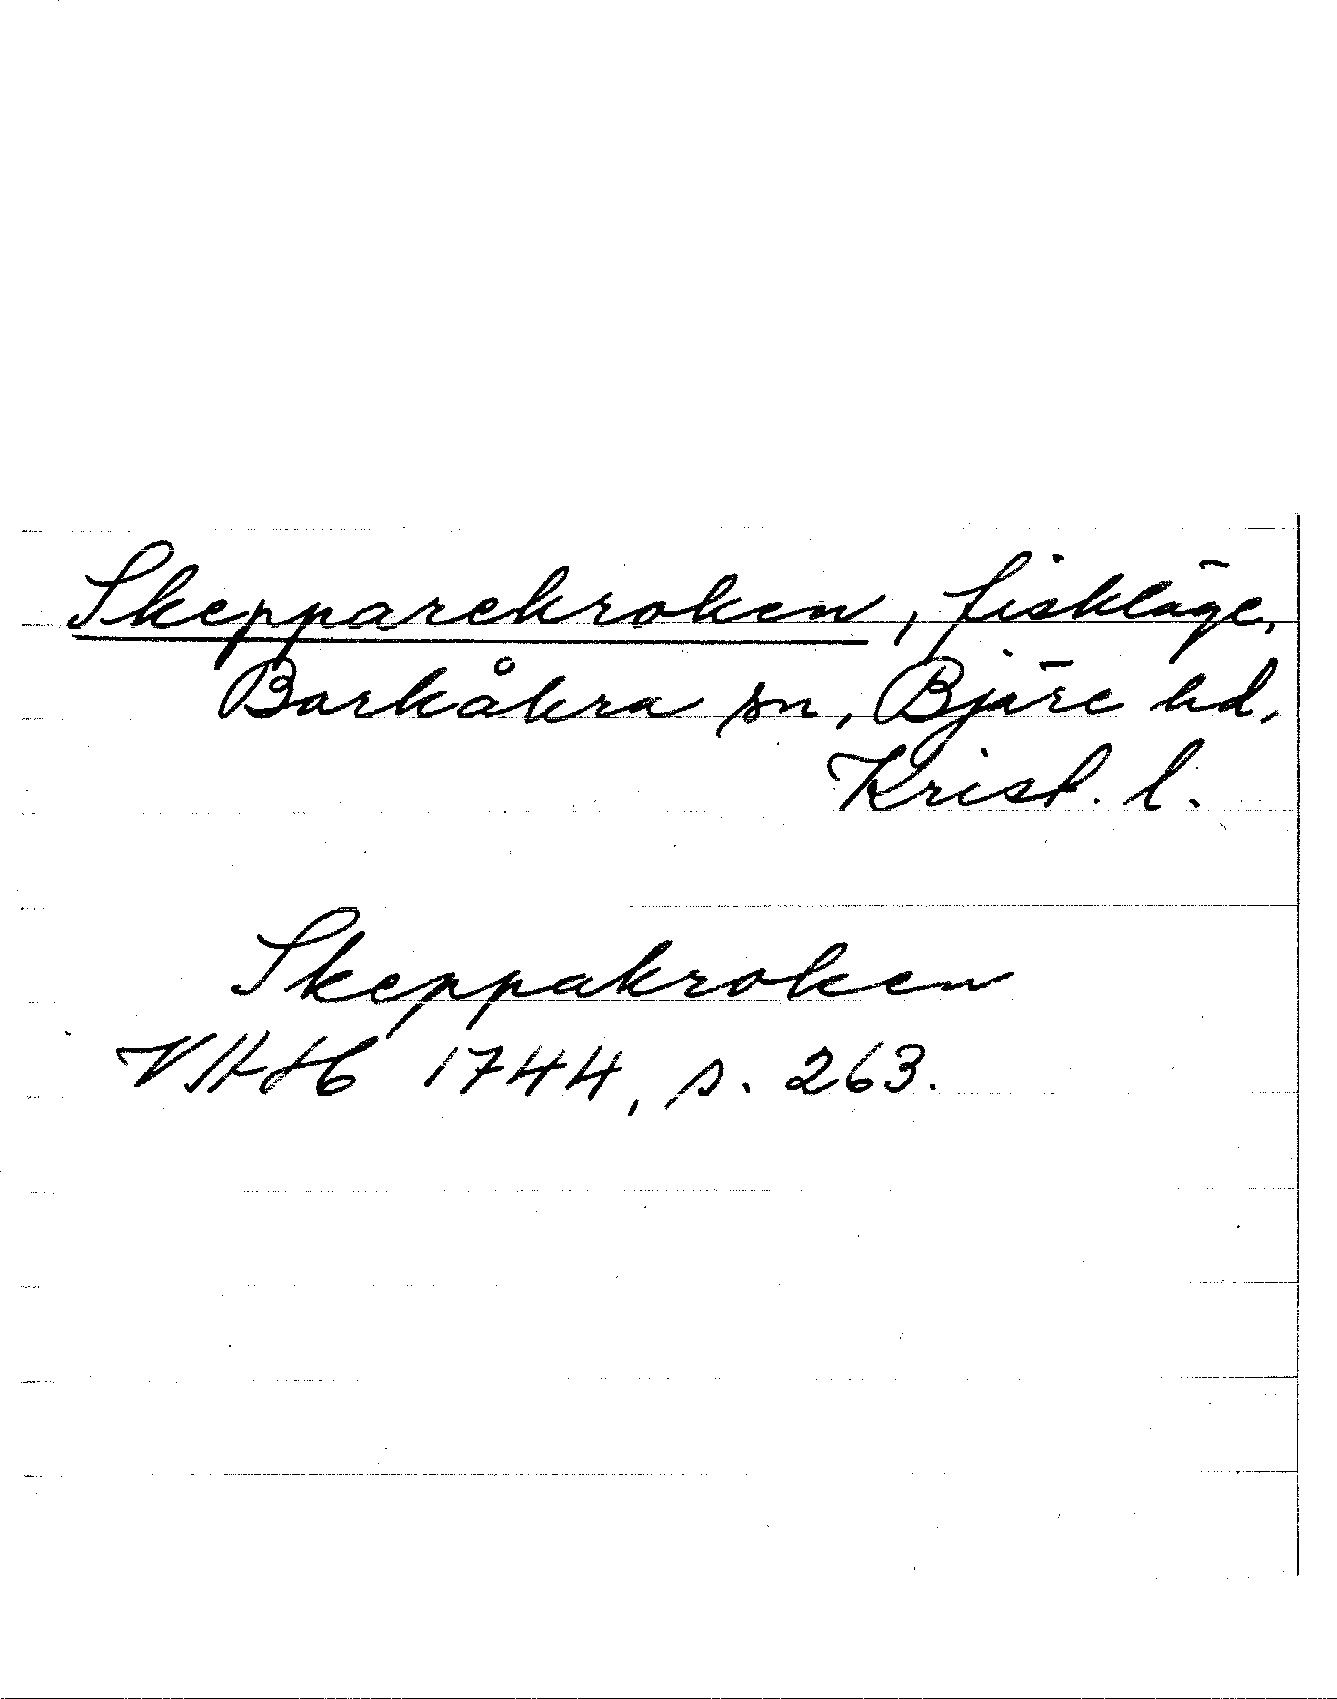 Skepparekroken, fiskläge,
Barkåkra sn, Bjäre hd,
Krist. l.
Skeppakroken
1744, s. 263.